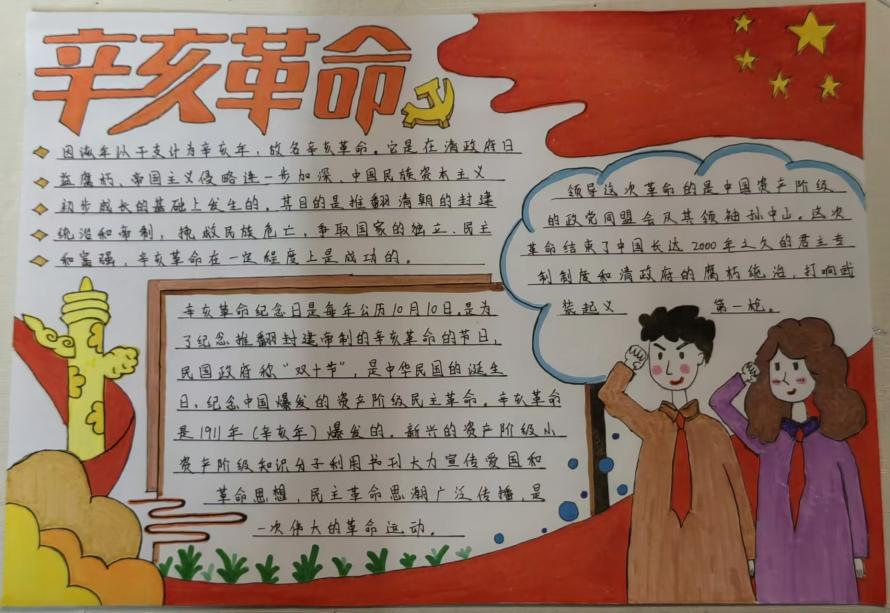 辛亥革命
因该年以干支计为辛亥年，故名辛亥革命。它是在清政府日
益腐朽、帝国主义侵略进一步加深、中国民族资本主义
初步成长的基础上发生的。其目的是推翻清朝的封建
统治和帝制，挽救民族危亡，争取国家的独立、民主
和富强，辛亥革命在一定程度上是成功的。
领导这次革命的是中国资产阶级
的政党同盟会及其领袖孙中山。这次
革命结束了中国长达2000年之久的君主专
制制度和清政府的腐朽统治，打响武
装起义 第一枪。
辛亥革命纪念日是每年公历10月10日。是为
了纪念推翻封建帝制的辛亥革命的节日，
民国政府称“双十节”，是中华民国的诞生
日。纪念中国爆发的资产阶级民主革命。辛亥革命
是1911年（辛亥年）爆发的。新兴的资产阶级小
资产阶级知识分子利用书刊大力宣传爱国和
革命思想，民主革命思潮广泛传播，是
一次伟大的革命运动。